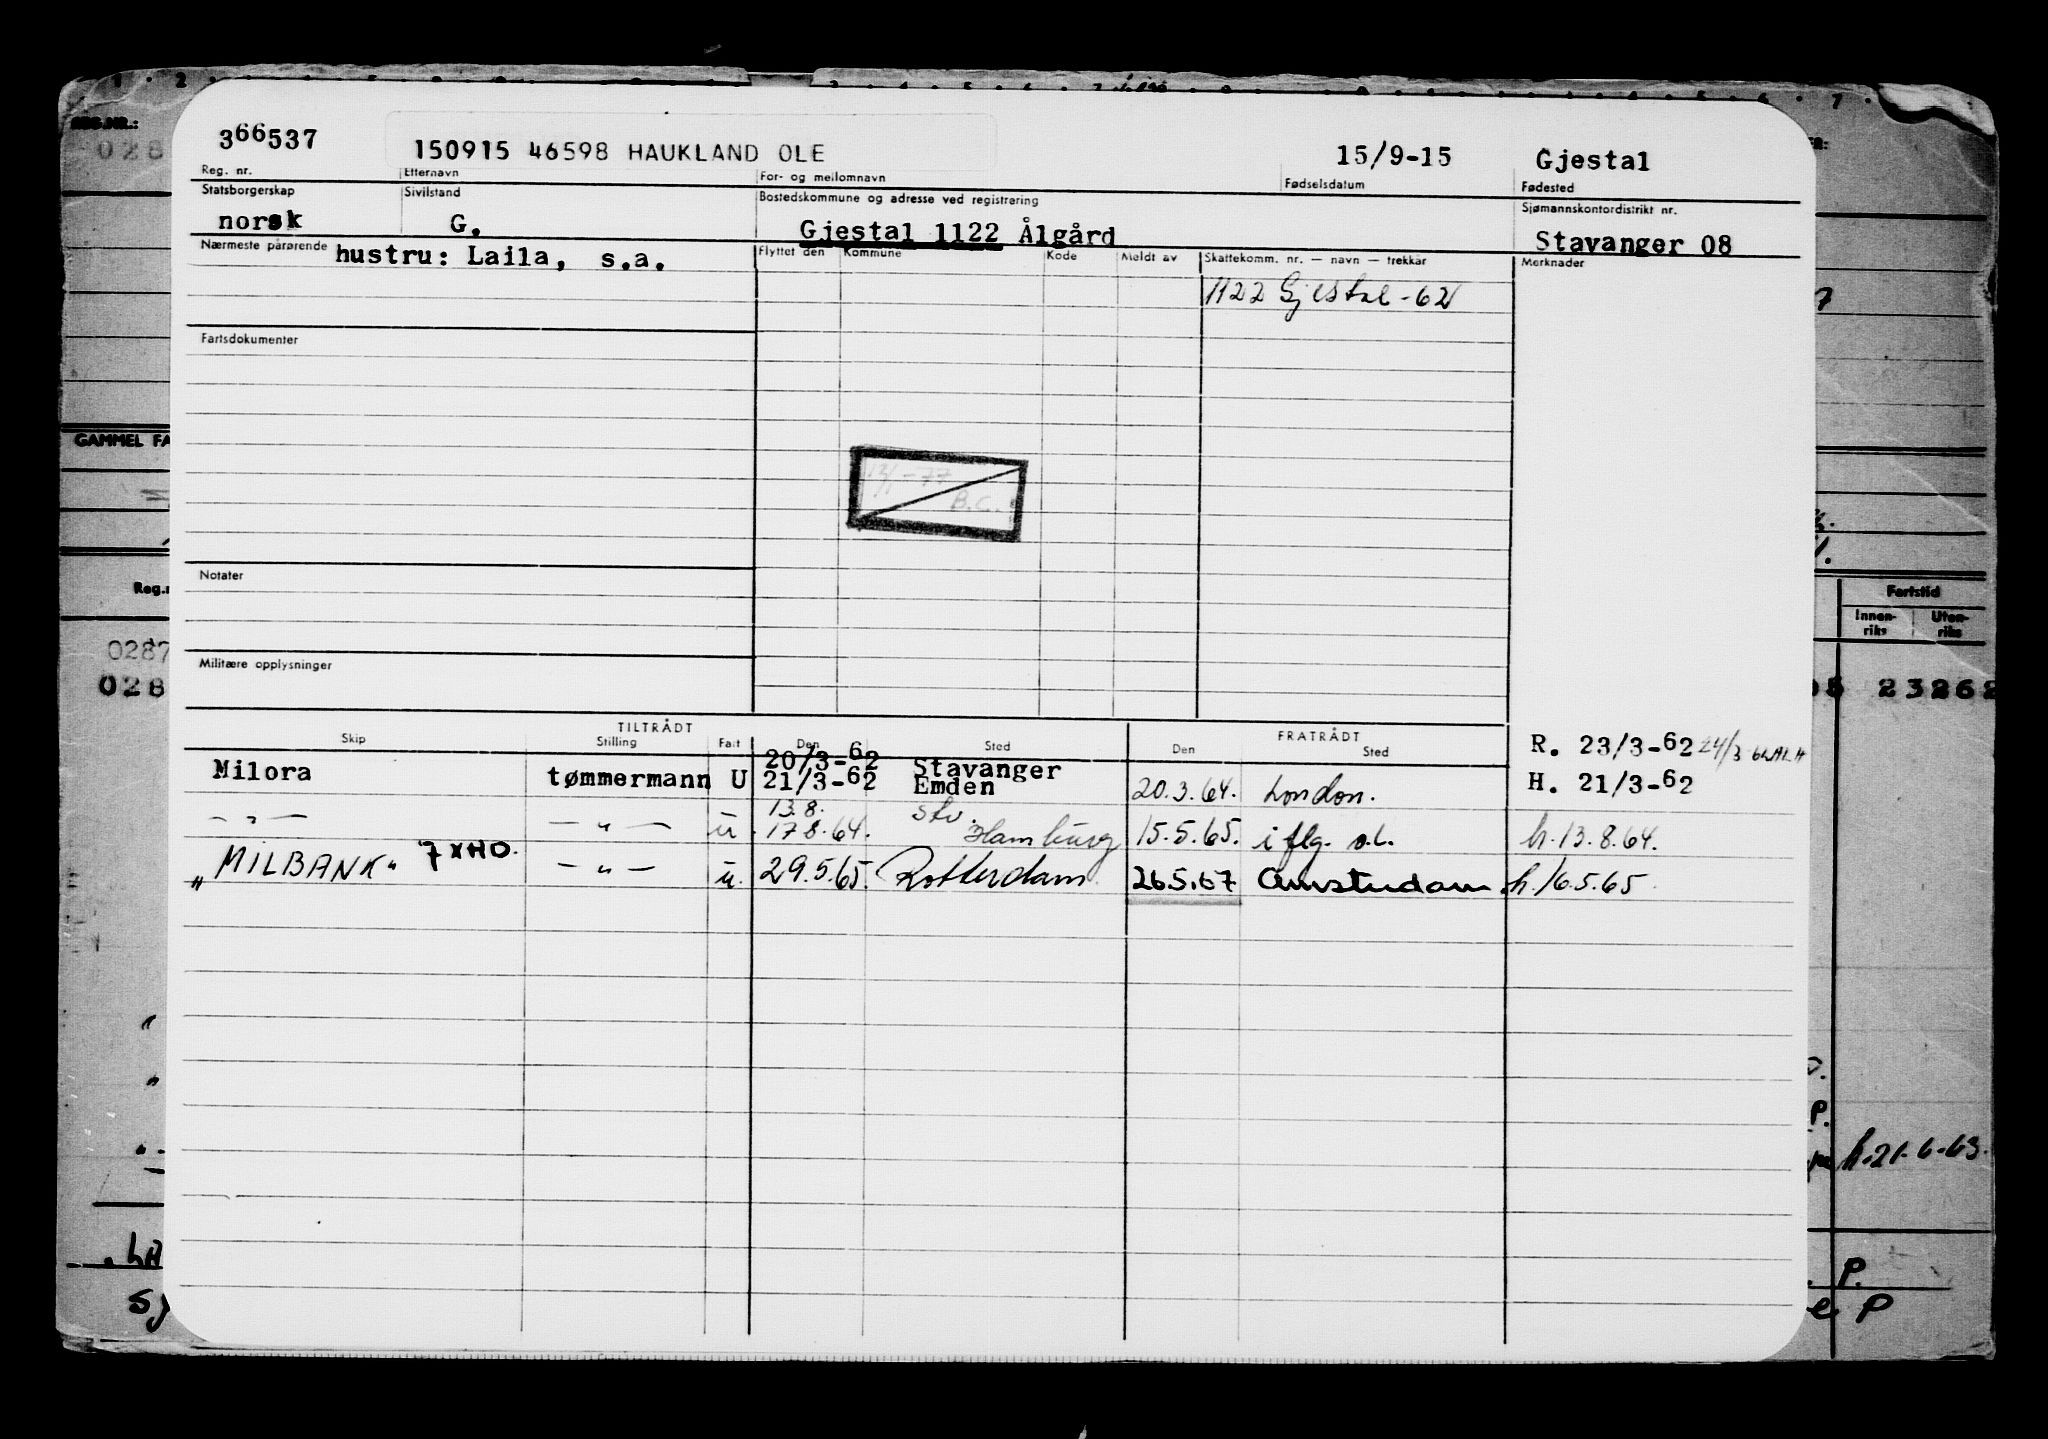 366537 150915 46598 HAUKLAND OLE 15/9-15 Gjestal
Reg. nr. Etternavn For- og mellomnavn Fødselsdatum Fødested
Statsborgerskap Sivilstand Bostedskommune og adresse ved registrering Sjømannskontordistrikt nr.
norsk G. Gjestal 1122 Ålgård Stavanger 08
Nærmeste pårørende hustru: Laila, s.a. Flyttet den Kommune Kode Meldt av Skattekomm. nr. — navn — trekkår Merknader
1122 Gjestal -62
Fartsdokumenter
GAMMEL FA
12/1-77
B.C.
Notater
Reg.n
Fartstid
Innen-riks Uten-riks
0287
Militære opplysninger
028 23262
TILTRÅDT FRATRÅDT
Skip Stilling Fart Den Sted Den Sted
R. 23/3-62 24/3-62
20/3-62 Stavanger
Milora tømmermann U 21/3-62 Emden 20.3.64. London. H. 21/3-62
13.8. Stv.
— " — — " — u. 17.8.64. Hamburg 15.5.65. i flg. o.l. h.13.8.64.
"MILBANK" 7XHO. — " — u. 29.5.65. Rotterdam. 26.5.67 Amsterdam. h.16.5.65.
P.
h.21.6.63.
P.
e P